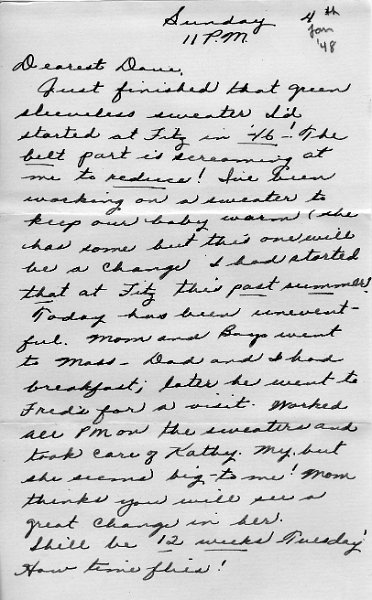 Sunday 4th
11 P.M. Jan '48
Dearest Dave,
Just finished that green
sleeveless sweater I'd
started at Fitz in '46! The
belt part is screaming at
me to reduce! I've been
working on a sweater to
keep our baby warm (she
has some but this one will
be a change. I had started
that at Fitz this past summer.
Today has been unevent-
ful. Mom and Boys went
to Mass - Dad and I had
breakfast; later he went to
Fred's for a visit. Worked
all PM on the sweaters and
took care of Kathy. My, but
she seems big - to me! Mom
thinks you will see a
great change in her.
She'll be 12 weeks Tuesday!
How time flies!